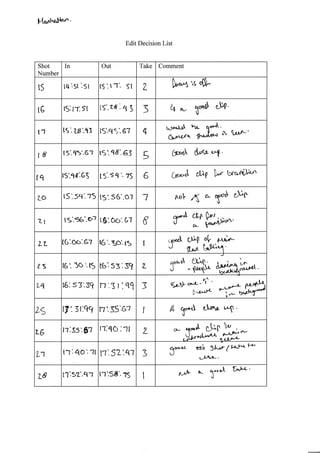 Manhattan.
Edit Decision List
Shot Number In Out Take Comment
15 14:51:51 15:17:51 2 is off
16 15:17:51 15:28:43 3 a good clip.
17 15:28:43 15:45:67 4 would be good.
Camera shadow is seen.
18 15:45:67 15:48:63 5 Good close up.
19 15:48:63 15:54:75 6 Good clip for transition
20 15:54:75 15:56:07 7 not a good clip
21 15:56:07 16:00:67 8 good clip for
a transition.
22 16:00:67 16:30:15 1 good clip of main
23 16:30:15 16:53:39 2 good clip.
- people dancing in
background.
24 16:53:39 17:31:99 3 Best one.
people
in background
25 17:31:99 17:35:67 1 A good close up.
26 17:35:67 17:40:71 2 a good clip to
introduce main
scene
27 17:40:71 17:52:97 3 good shot /
use.
28 17:52:97 17:58:75 1 not a good take.